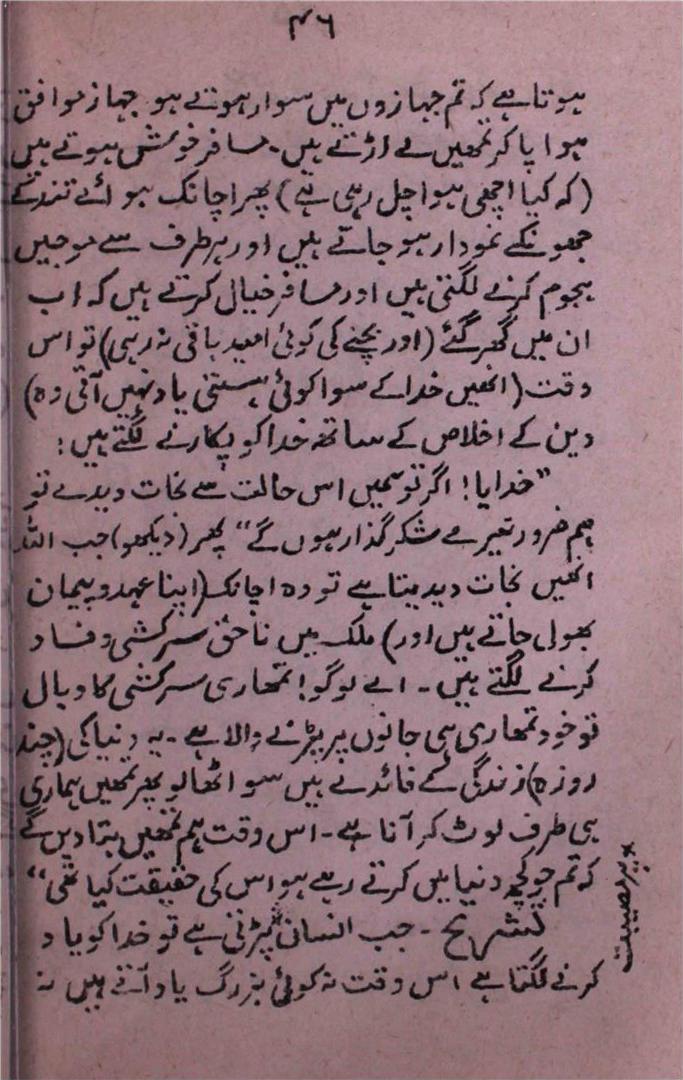 ۴۶
ہوتا ہے کہ تم جہازوں میں سوار ہوتے ہو جہاز موافق
ہوا پا کر تمھیں لے اڑتے ہیں۔ مسافر خوش ہوتے ہیں
(کہ کیا اچھی ہوا چل رہی ہے) پھر اچانک ہوائے تند کے
جھونکے نمودار ہو جاتے ہیں اور ہر طرف سے موجیں
ہجوم کرنے لگتی ہیں اور مسافر خیال کرتے ہیں کہ اب
ان میں گھر گئے (اور بچنے کی کوئی امید باقی نہ رہی) تو اس
وقت (انھیں خدا کے سوا کوئی ہستی یاد نہیں آتی وہ)
دین کے اخلاص کے ساتھ خدا کو پکارنے لگتے ہیں:
”خدایا! اگر تو ہمیں اس حالت سے نجات دیدے تو
ہم ضرور تیرے شکر گذار ہوں گے“ پھر (دیکھو) جب اللہ
انھیں نجات دیدیتا ہے تو وہ اچانک (اپنا عہد و پیمان
بھول جاتے ہیں اور) ملک میں ناحق سرکشی و فساد
کرنے لگتے ہیں۔ اے لوگو! تمھاری سرکشی کا وبال
تو خود تمھاری ہی جانوں پر پڑنے والا ہے۔ یہ دنیا کی (چند
روزہ) زندگی کے فائدے ہیں سو اٹھا لو پھر تمھیں ہماری
ہی طرف لوٹ کر آنا ہے۔ اس وقت ہم تمھیں بتا دیں گے
کہ تم جو کچھ دنیا میں کرتے رہے ہو اس کی حقیقت کیا تھی“
تشریح۔ جب انسان پڑتی ہے تو خدا کو یاد
کرنے لگتا ہے اس وقت نہ کوئی بزرگ یاد آتے ہیں نہ
پر مصیبت